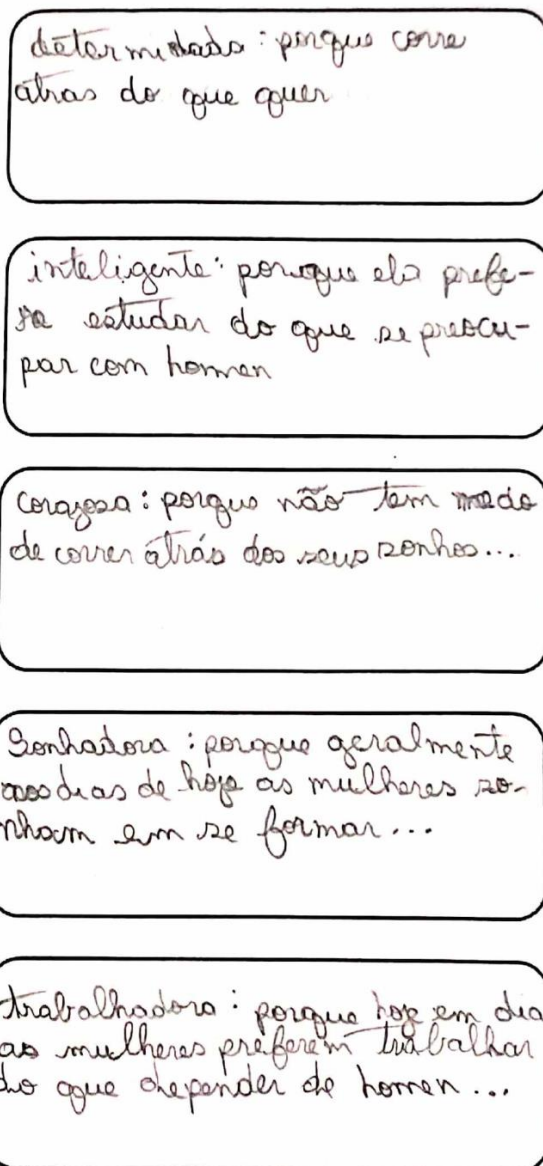 determinada: porque corre
atras do que quer
inteligente: porque ela prefe-
ra estudar do que se preocu-
par com homen
corajosa: porque não tem medo
de correr atrás dos seus sonhos...
Sonhadora: porque geralmente
nos dias de hoje as mulheres so-
nham em se formar...
trabalhadora: porque hoje em dia
as mulheres preferem trabalhar
do que depender de homen...